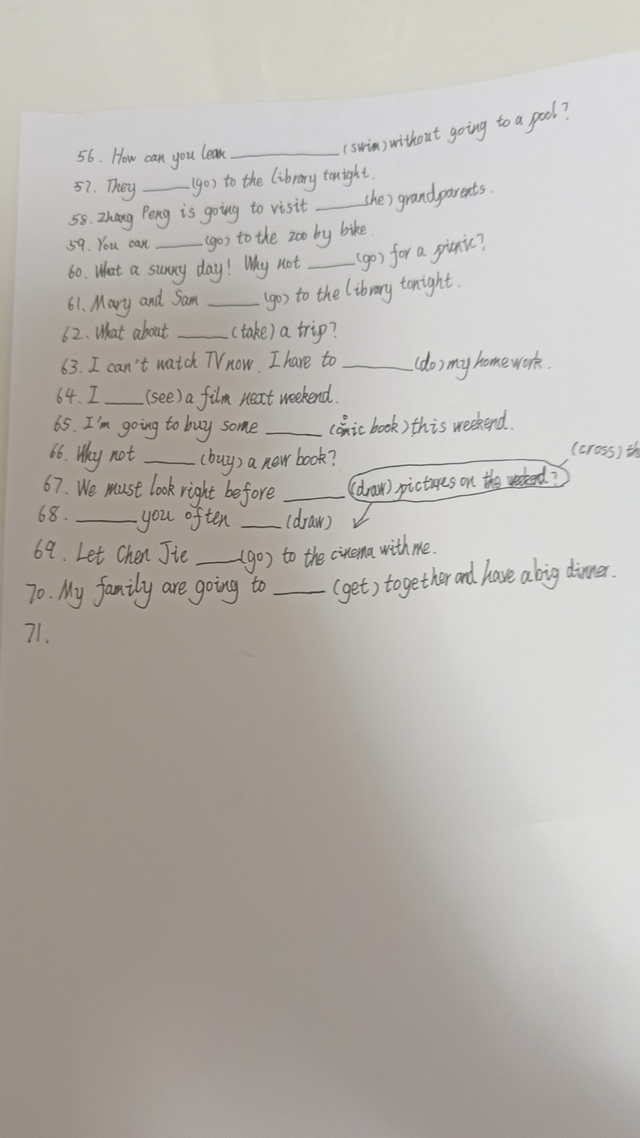 56. How can you lean ________ (swim) without going to a pool?
57. They ____ (go) to the library tonight.
58. Zhang Peng is going to visit ____ (he) grandparents.
59. You can ____ (go) to the zoo by bike.
60. What a sunny day! Why not ____ (go) for a picnic?
61. Mary and Sam ____ (go) to the library tonight.
62. What about ____ (take) a trip?
63. I can't watch TV now. I have to ____ (do) my homework.
64. I ____ (see) a film next weekend.
65. I'm going to buy some ____ (comic book) this weekend.
66. Why not ____ (buy) a new book?
(cross) th
67. We must look right before ____ (draw) pictures on the weekend?
68. ____ you often ____ (draw)
69. Let Chen Jie ____ (go) to the cinema with me.
70. My family are going to ____ (get) together and have a big dinner.
71.